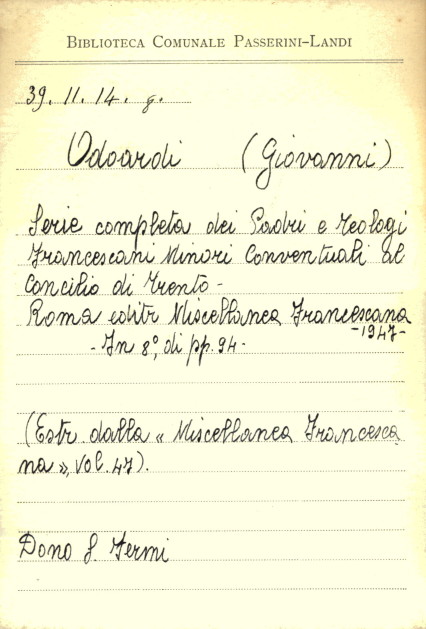 BIBLIOTECA COMUNALE PASSERINI-LANDI
39. 11. 14. g.
Odoardi (Giovanni)
Serie completa dei Padri e teologi
Francescani Minori Conventuali al
Concilio di Trento -
Roma editr Miscellanea Francescana
- 1947 -
- In 8°, di pp. 94 -
(Estr. dalla « Miscellanea Francesca
na », vol. 47).
Dono S. Fermi